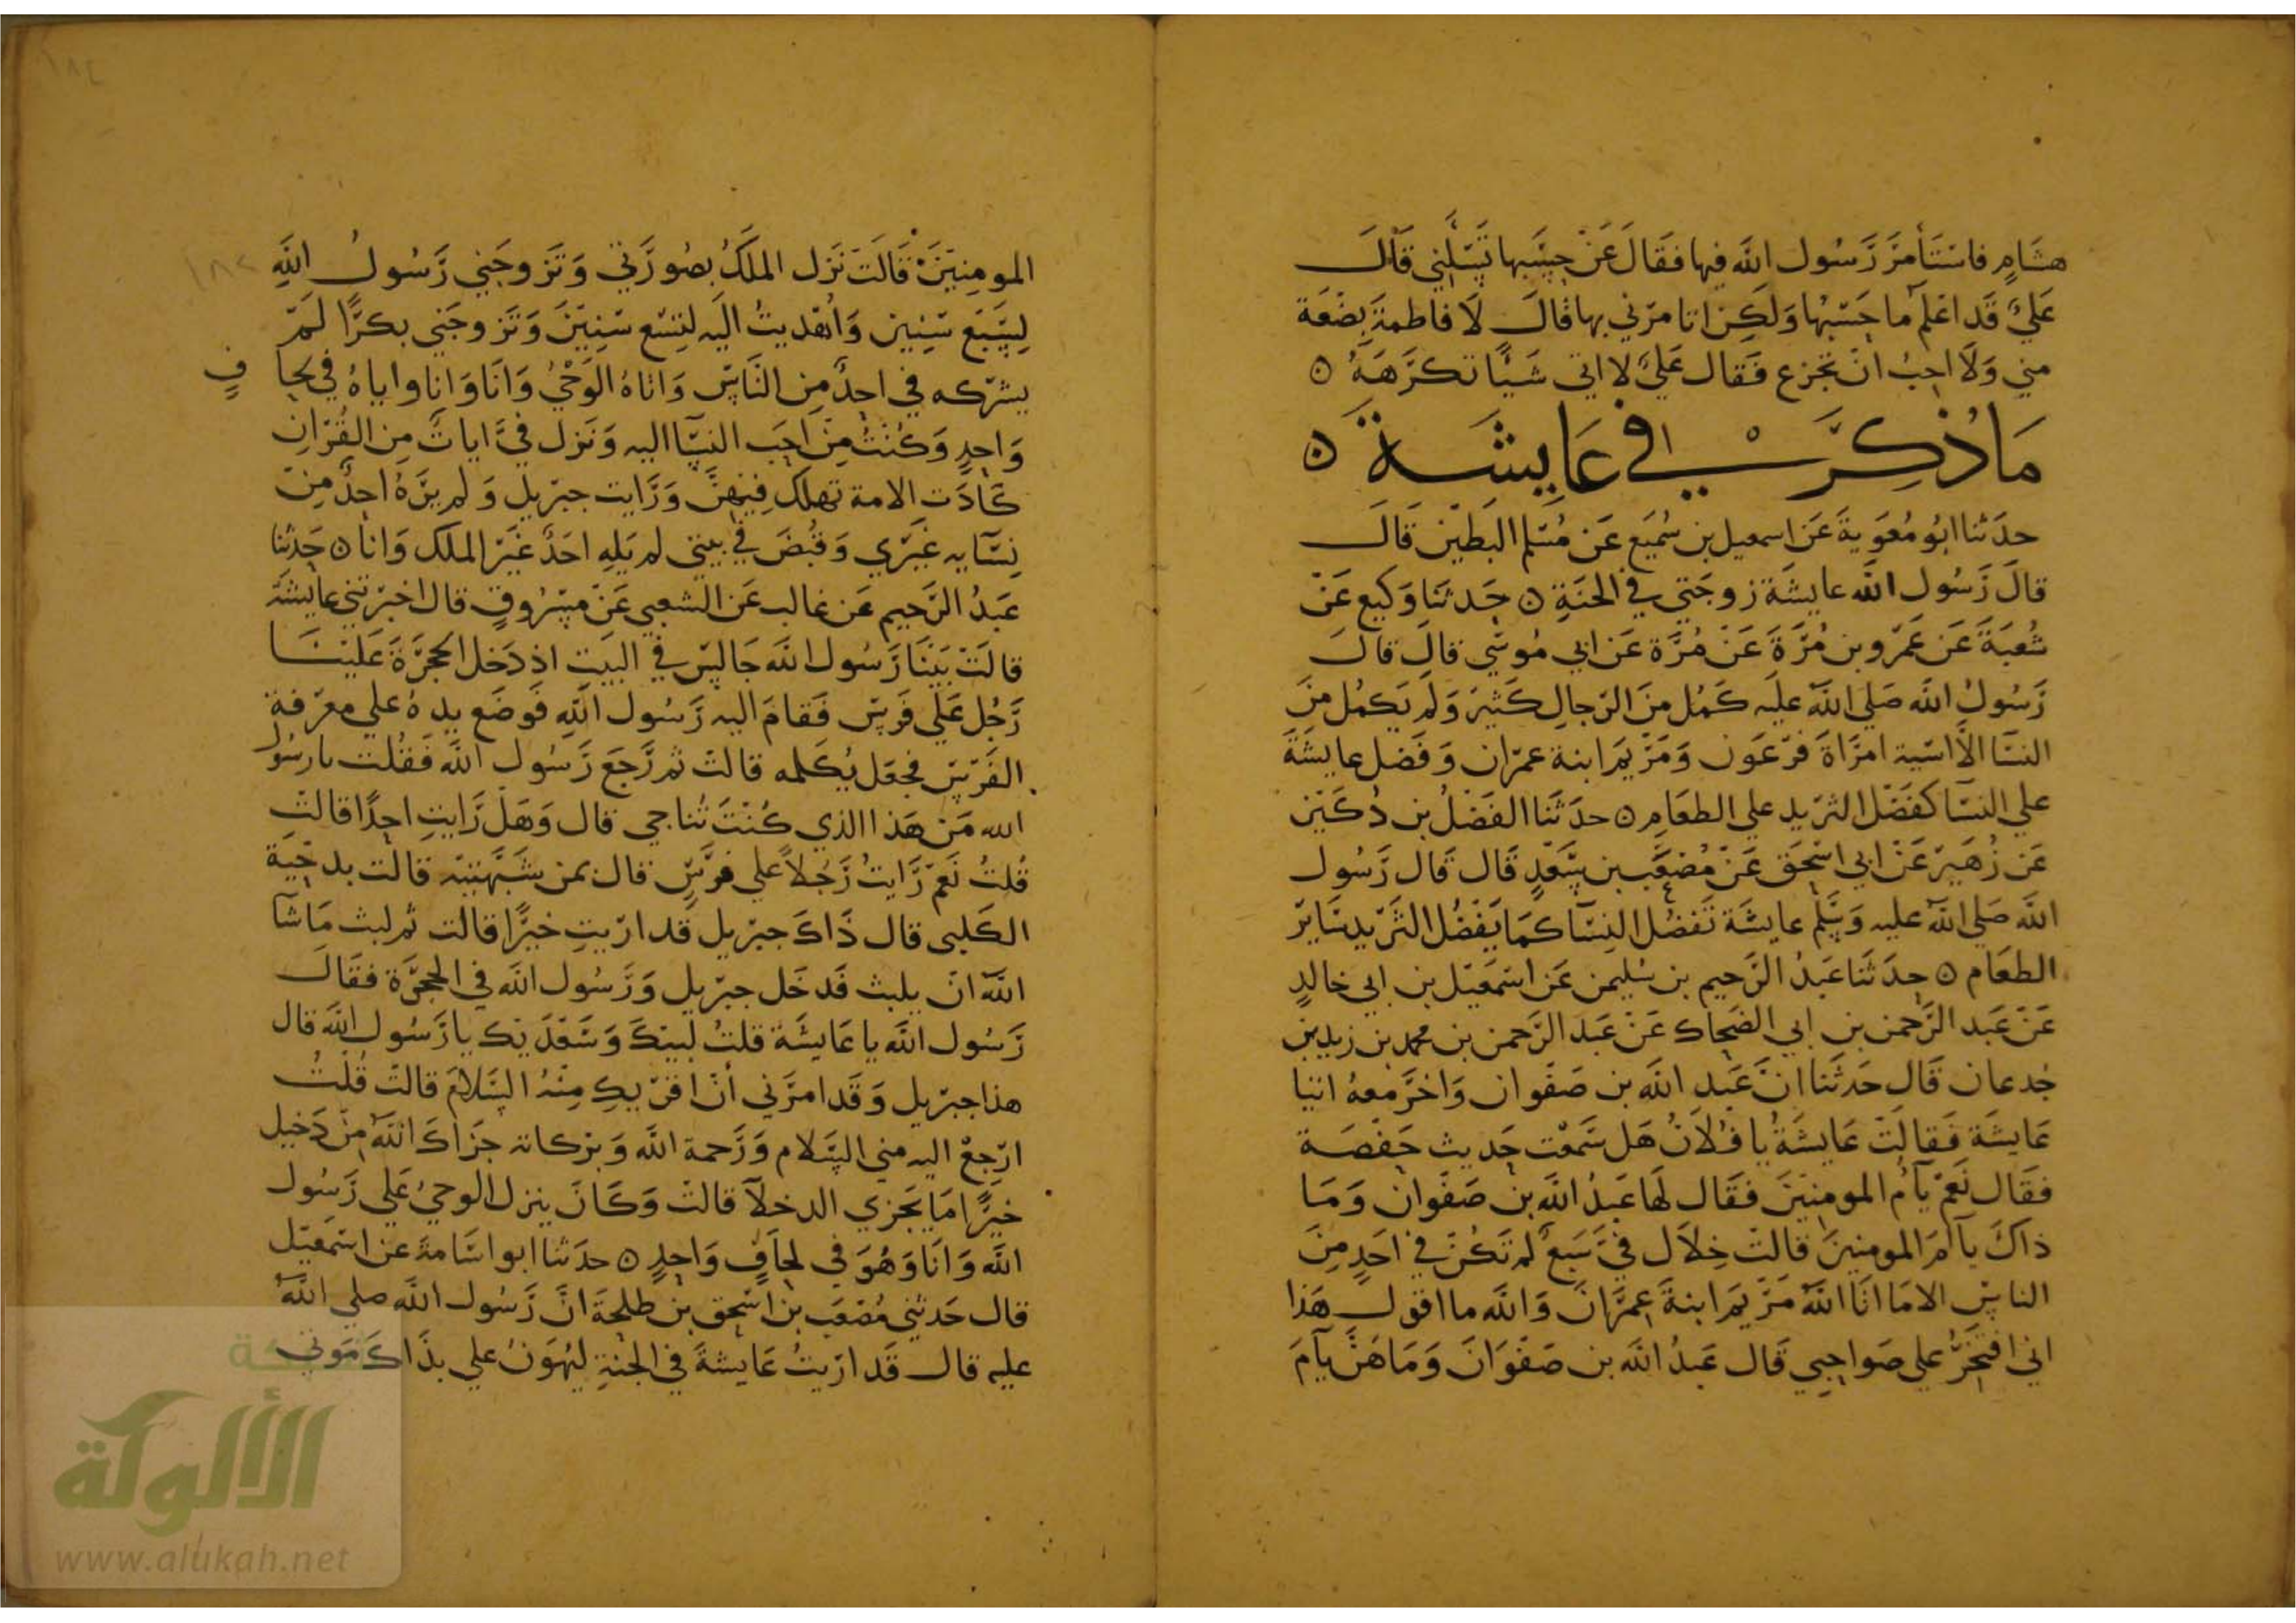 هشام فاستأمر رسول الله فيها فقال عن حسبها تسلني قال
علي قد اعلم ما حسبها ولكن اتامرني بها قال لا فاطمة بضعة
مني ولا احب ان تجزع فقال علي لا اتي شيئا تكرهه ه
ما ذكر في عايشة ه
حدثنا ابو معوية عن اسمعيل بن سميع عن مسلم البطين قال
قال رسول الله عايشة زوجتي في الجنة ه حدثنا وكيع عن
شعبة عن عمرو بن مرة عن مرة عن ابي موسي قال قال
رسول الله صلي الله عليه كمل من الرجال كثير ولم يكمل من
النسا الا اسية امراة فرعون ومريم ابنة عمران وفضل عايشة
علي النسا كفضل الثريد علي الطعام ه حدثنا الفضل بن دكين
عن زهير عن ابي اسحق عن مصعب بن سعد قال قال رسول
الله صلي الله عليه وسلم عايشة تفضل النسا كما يفضل الثريد ساير
الطعام ه حدثنا عبد الرحيم بن سليمن عن اسمعيل بن ابي خالد
عن عبد الرحمن بن ابي الضحاك عن عبد الرحمن بن محمد بن زيد بن
جدعان قال حدثنا ان عبد الله بن صفوان واخر معه اتيا
عايشة فقالت عايشة يا فلان هل سمعت حديث حفصة
فقال نعم يآم المومنين فقال لها عبد الله بن صفوان وما
ذاك يآم المومنين قالت خلال في سبع لم تكن في احد من
الناس الا ما اتا الله مريم ابنة عمران والله ما اقول هذا
اني افتخر علي صواحبي قال عبد الله بن صفوان وما هن يآم
المومنين قالت نزل الملك بصورتي وتزوجني رسول الله
لسبع سنين واهديت اليه لتسع سنين وتزوجني بكرا لم
يشركه في احد من الناس واتاه الوحي وانا وانا واياه في لحاف
واحد وكنت من احب النسا اليه ونزل في ايات من القران
كادت الامة تهلك فيهن ورايت جبريل ولم يره احد من
نسايه غيري وقبض في بيتي لم يله احد غير الملك وانا ه حدثنا
عبد الرحيم عن غالب عن الشعبي عن مسروق قال اخبرتني عايشة
قالت بينا رسول الله جالس في البيت اذ دخل الحجرة علينا
رجل علي فرس فقام اليه رسول الله فوضع يده علي معرفة
الفرس فجعل يكلمه قالت ثم رجع رسول الله فقلت يا رسول
الله من هذا الذي كنت تناجي قال وهل رايت احدا قالت
قلت نعم رايت رجلا علي فرس قال بمن شبهتيه قالت بدحية
الكلبي قال ذاك جبريل قد اريت خيرا قالت ثم لبث ما شآ
الله ان يلبث فدخل جبريل ورسول الله في الحجرة فقال
رسول الله يا عايشة قلت لبيك وسعديك يا رسول الله قال
هذا جبريل وقد امرني ان اقريك منه السلام قالت قلت
ارجع اليه مني السلام ورحمة الله وبركاته جزاك الله من دخيل
خيرا ما يجزي الدخلآ قالت وكان ينزل الوحي علي رسول
الله وانا وهو في لحاف واحد ه حدثنا ابو اسامة عن اسمعيل
قال حدثني مصعب بن اسحق بن طلحة ان رسول الله صلي الله
عليه قال قد اريت عايشة في الجنة ليهون علي بذاك موتي
الألوكة
www.alukah.net